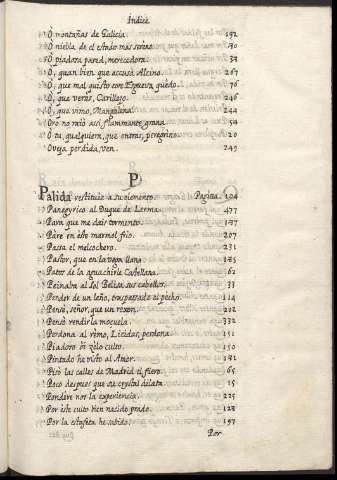 Indice
O montañas de Galicia. 192
O niebla, de el estado mas sereno. 30
O piadosa pared, merecedora. 38
O, quan bien que accusa Alcino. 267
O, que mal quisto con Esgueva quedo. 76
O, que verás, Carillejo. 246
O, que vimo, Mangalena. 244
Oro no rayó assi flammante grana. 54
O tu, qualquiera, que entras, peregrino. 20
Oveja perdida, ven. 249
P
Palida restituie a su elemento. Pagina. 104
Panegyrico al Duque de Lerma. 477
Para que me dais tormento. 177
Pare en este marmol frio. 207
Passa el melcochero. 231
Pastor, que en la vega llana 175
Patos de la aguachirle Castellana. 62
Peinaba al Sol Belisa sus cabellos. 33
Pender de un leño, traspassado el pecho. 114
Pensé, señor, que un rejon. 202
Pensó rendir la moçuela. 332
Perdona al remo, Licidas, perdona. 151
Piadoso hoi zelo culto. 150
Pintado he visto al Amor. 181
Pisó las calles de Madrid el fiero. 65
Poco despues que su crystal dilata. 15
Ponderè nos la experiencia. 225
Por este culto bien nacido prado. 128
Por la estafeta he sabido. 197
Por